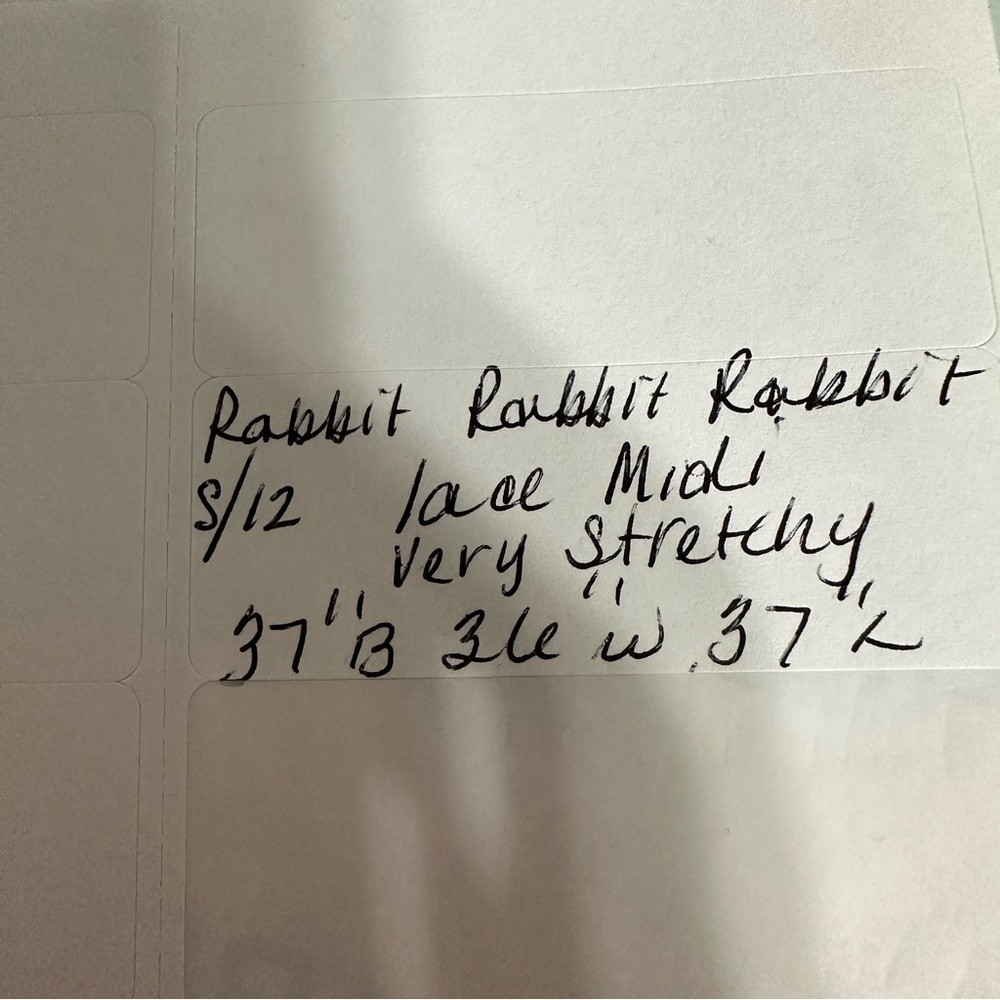 Rabbit Rabbit Rabbit
S/12 lace Midi
very stretchy
37"B 36"W 37"L